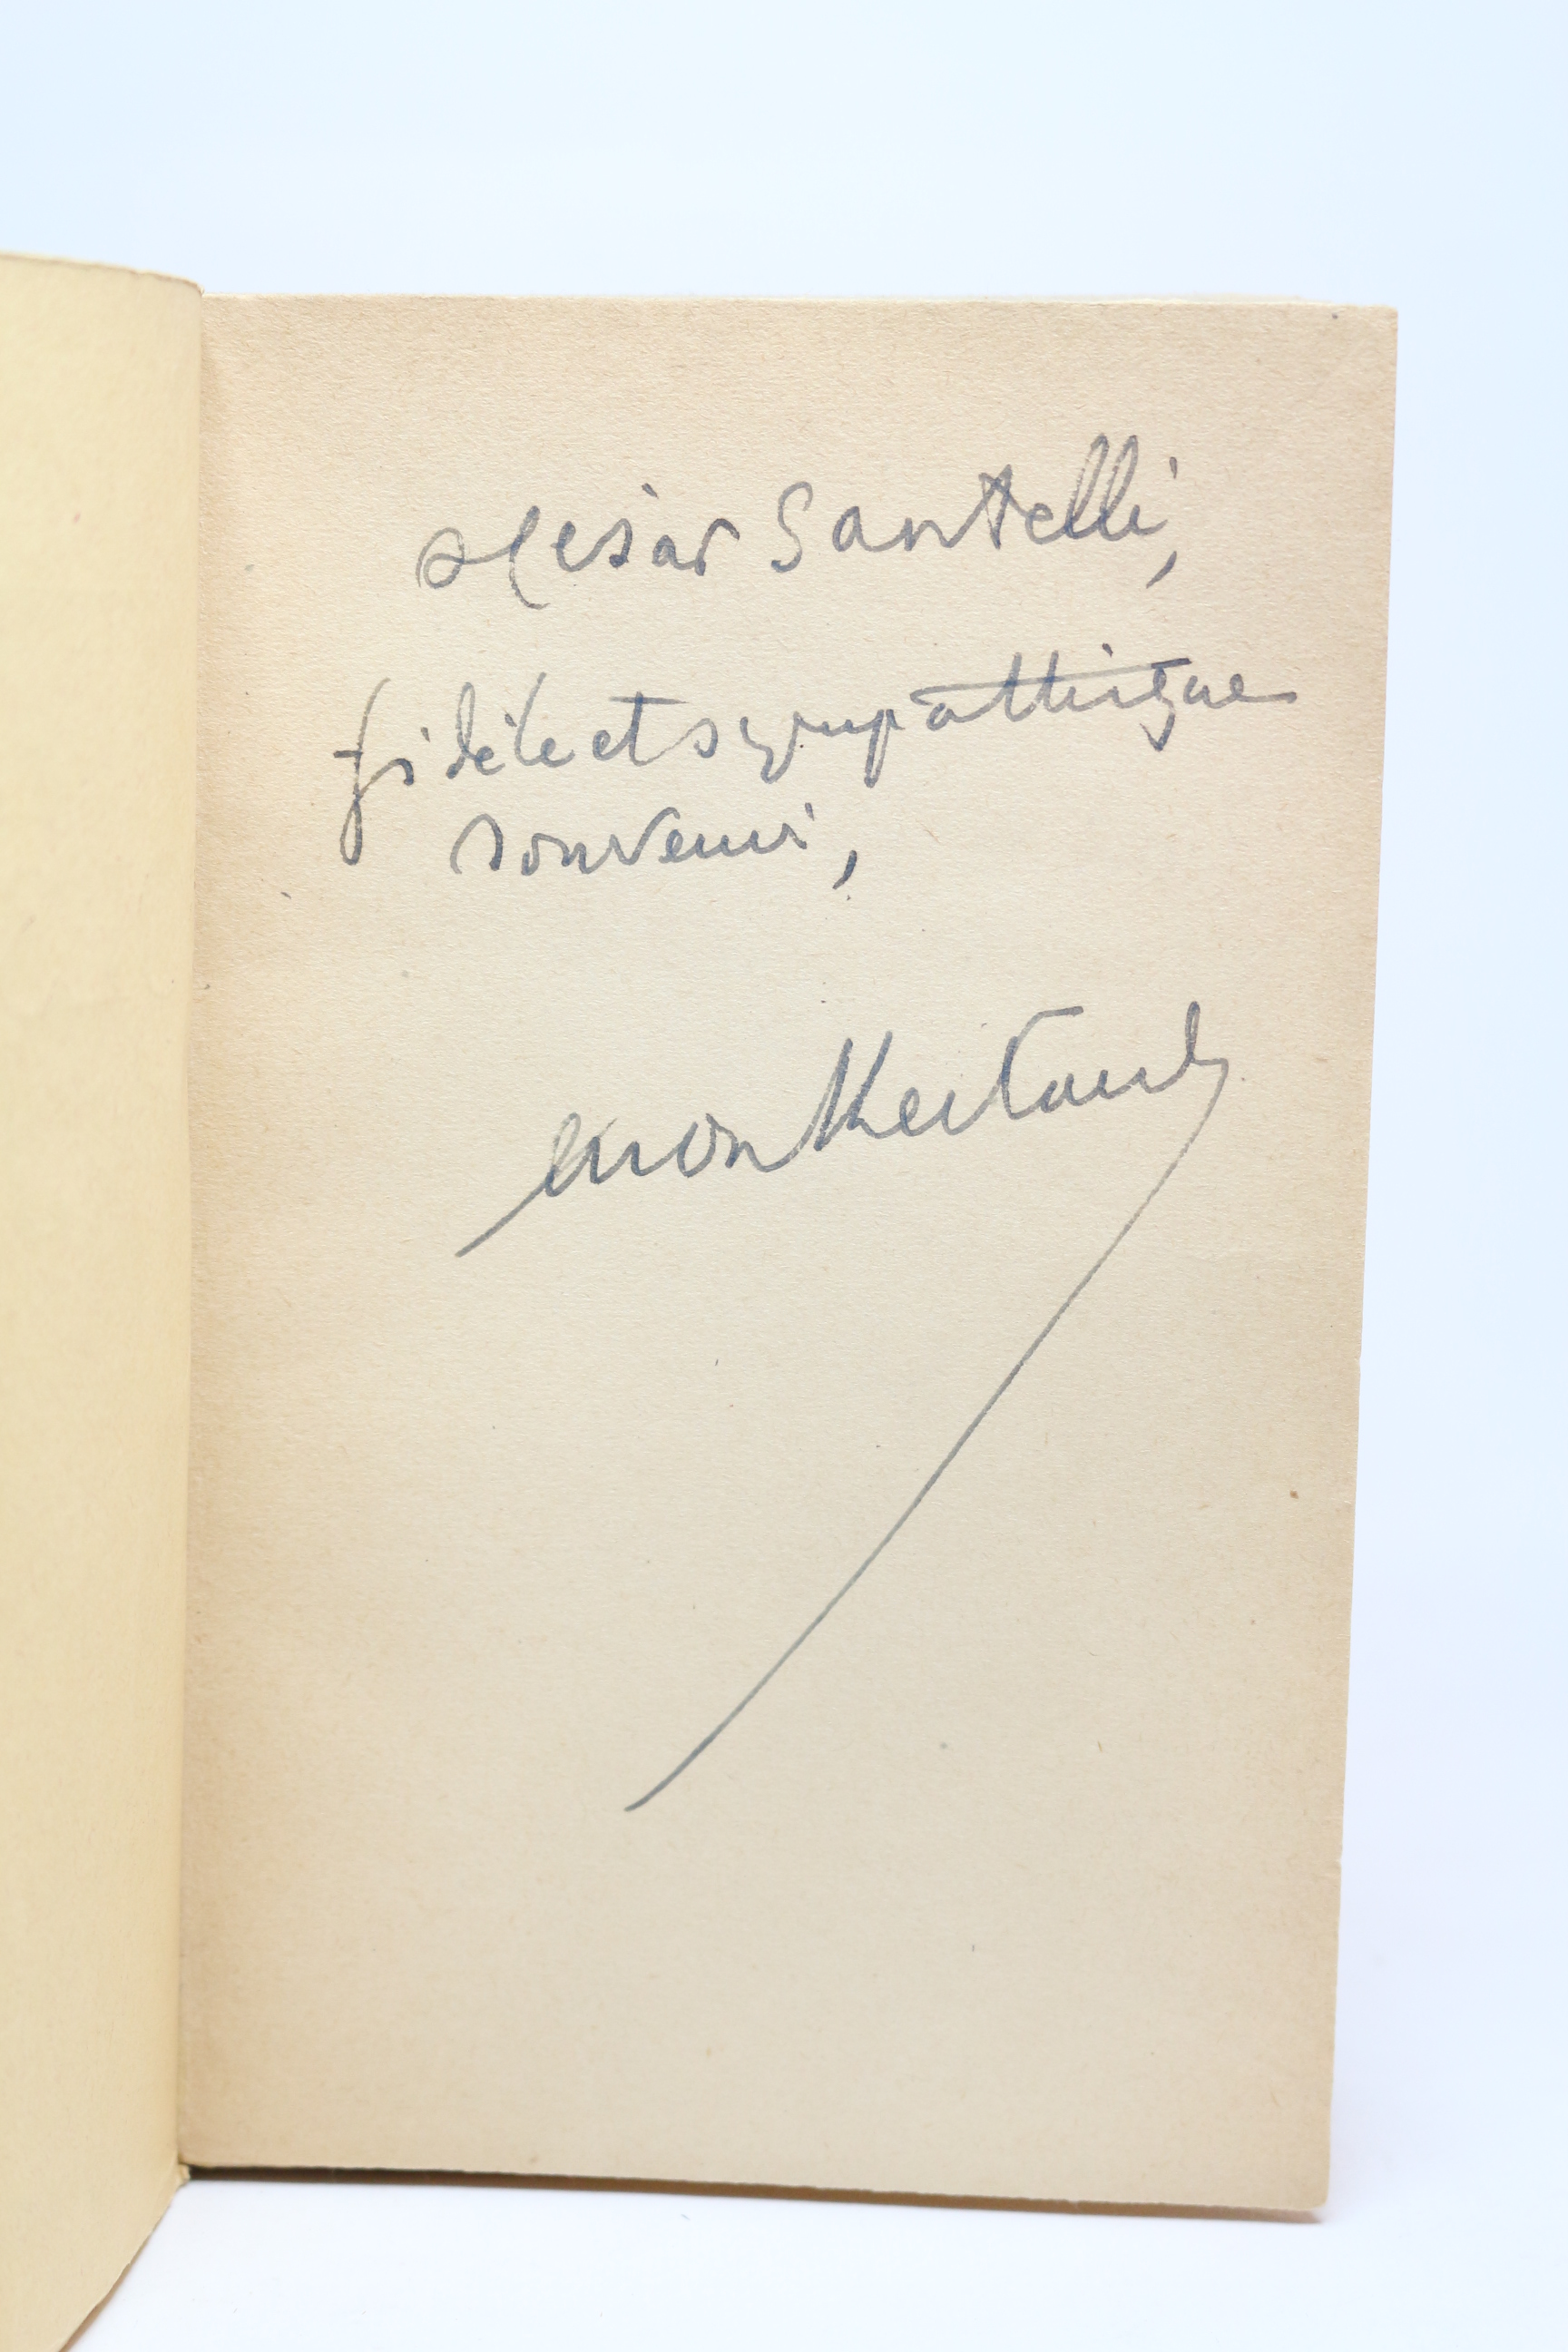 a César Santelli,
fidèle et sympathique
souvenir,
Montherlant